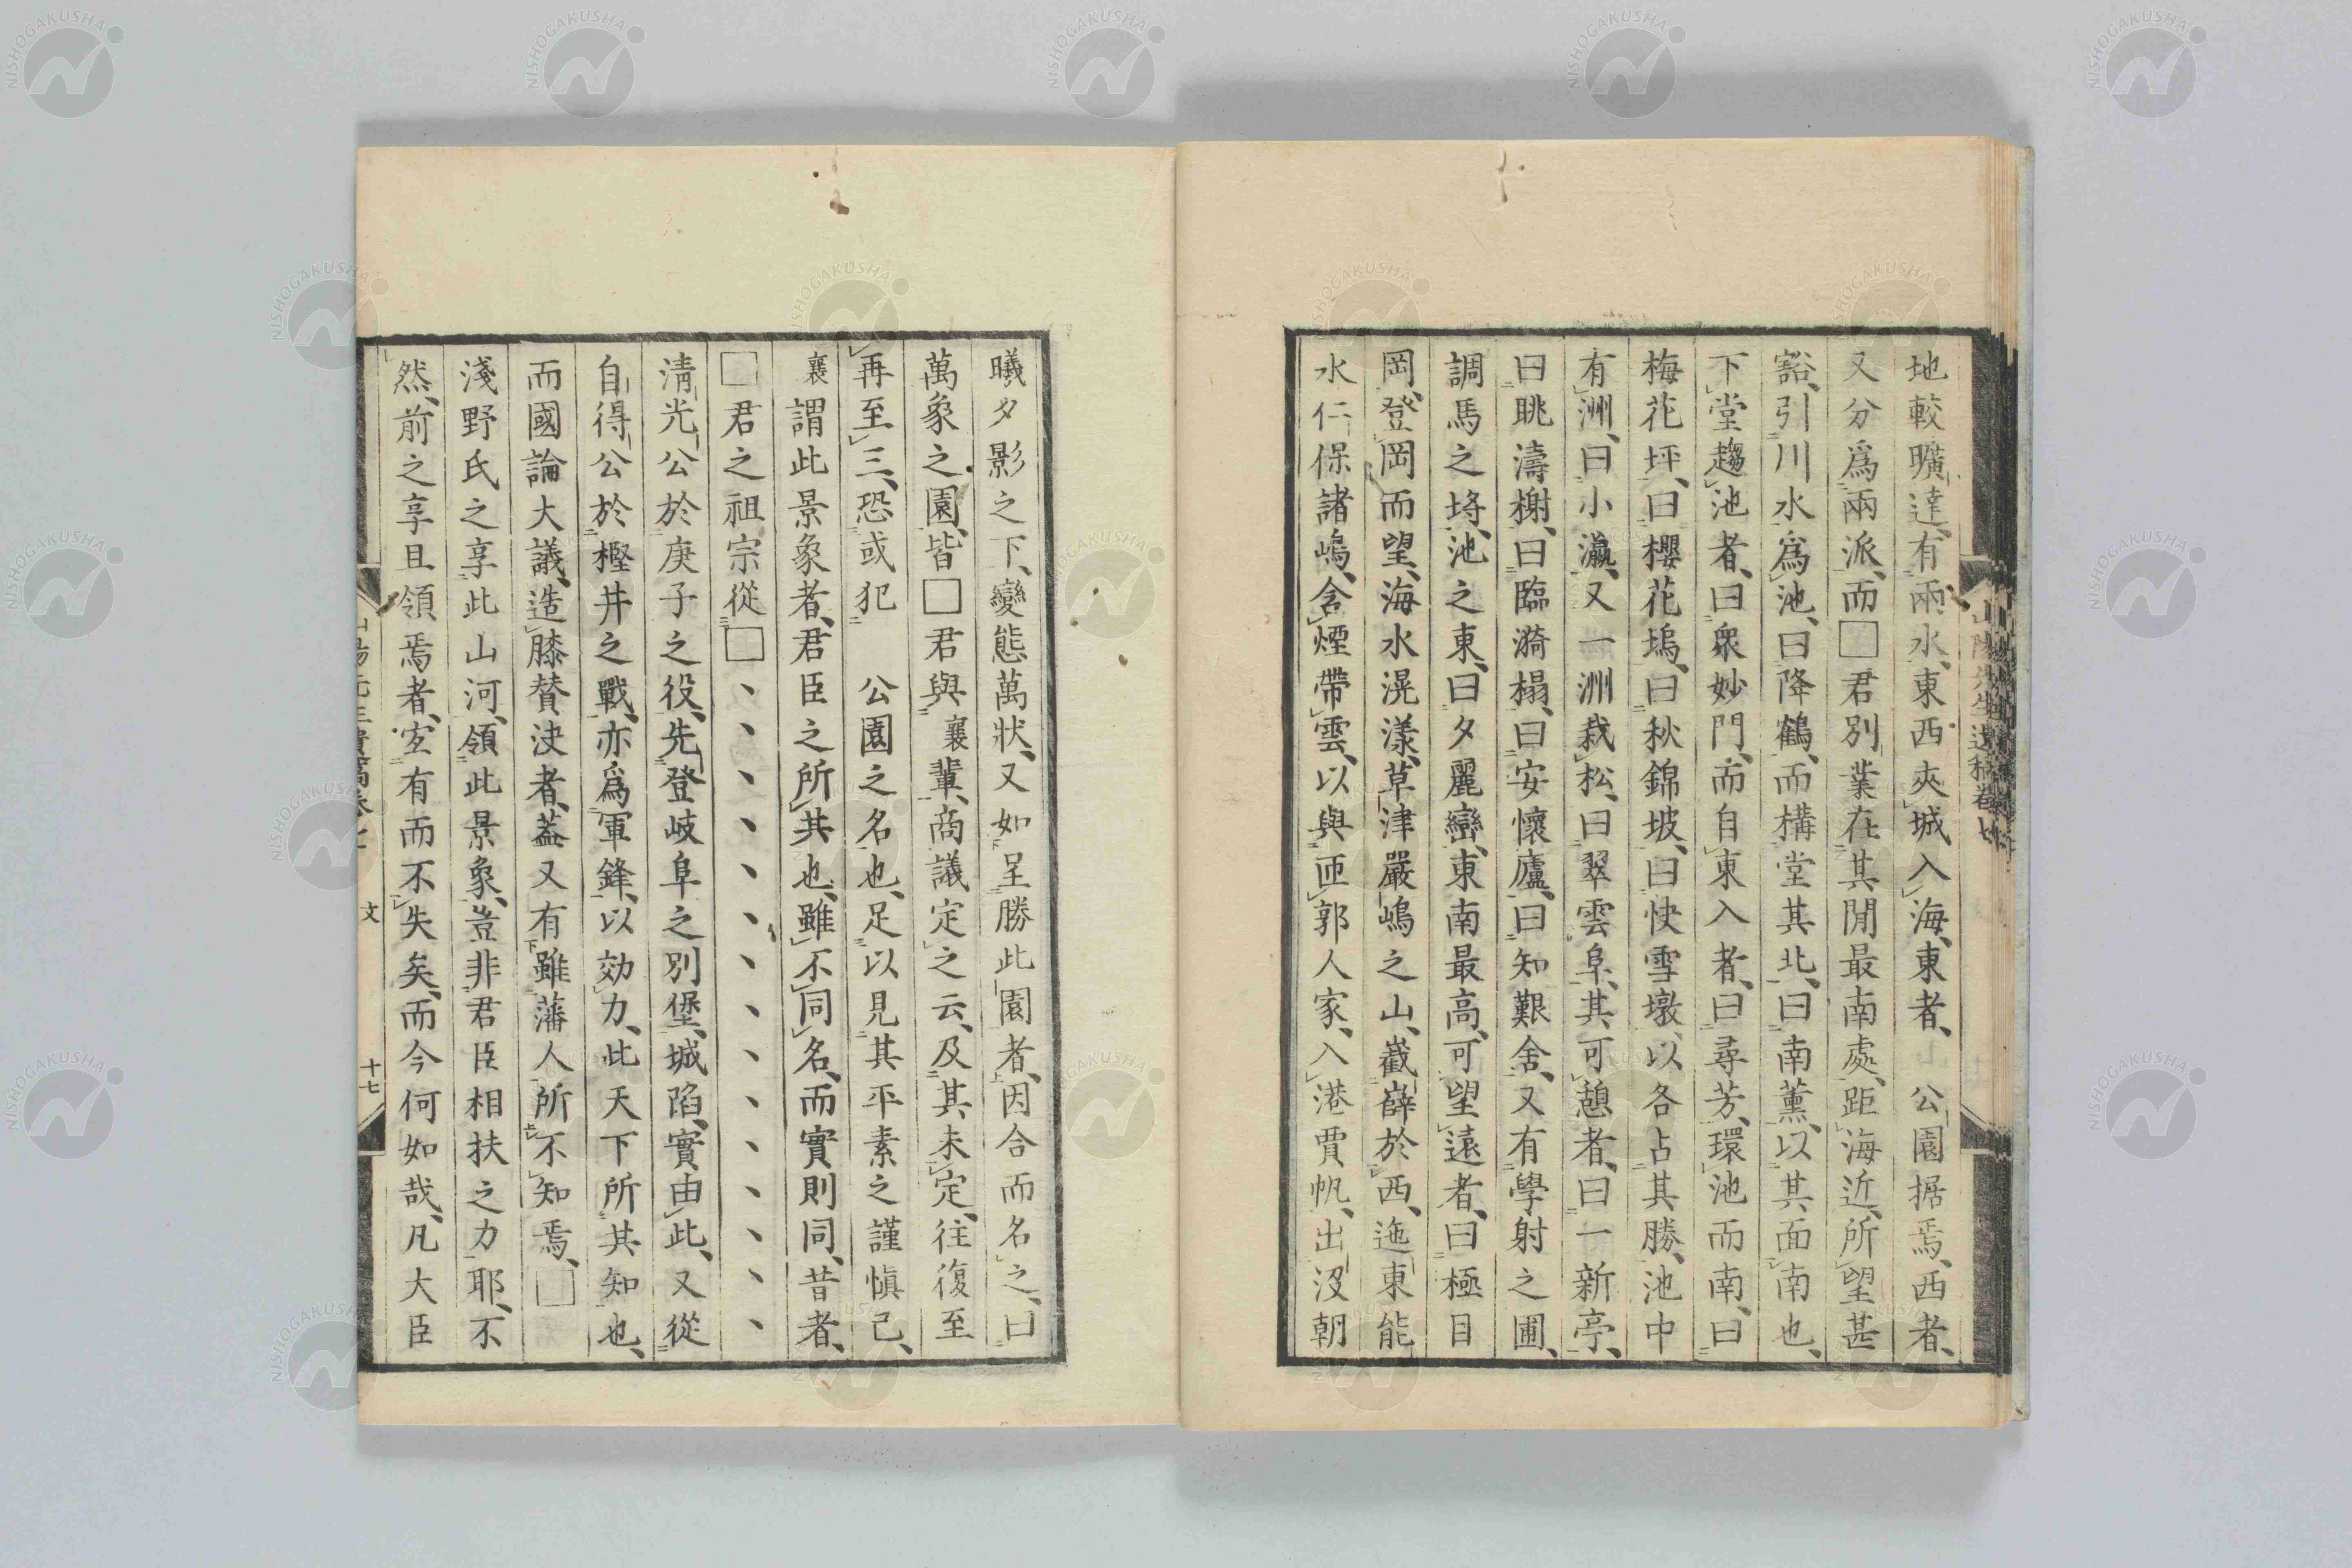 地較曠達、有兩水、東西夾城入海、東者、公園据焉、西者、
又分爲兩派、而□君別業在其閒最南處、距海近、所望甚
豁、引川水爲池、曰降鶴、而構堂其北、曰南薰、以其面南也、
下堂趨池者、曰衆妙門、而自東入者、曰尋芳、環池而南、曰
梅花坪、曰櫻花塢、曰秋錦坡、曰快雪墩、以各占其勝、池中
有洲、曰小瀛、又一洲栽松、曰翠雲阜、其可憩者、曰一新亭、
曰眺濤榭、曰臨漪榻、曰安懷廬、曰知艱舍、又有學射之圃、
調馬之埓、池之東、曰夕麗巒、東南最高、可望遠者、曰極目
岡、登岡而望、海水滉漾、草津嚴嶋之山、嶻嶭於西、迤東能
水仁保諸嶋、含煙帶雲、以與匝郭人家、入港賈帆、出沒朝
曦夕影之下、變態萬狀、又如呈勝此園者、因合而名之、曰
萬象之園、皆□君與襄輩商議定之云、及其未定、往復至
再至三、恐或犯 公園之名也、足以見其平素之謹愼已、
襄謂此景象者、君臣之所共也、雖不同名、而實則同、昔者、
□君之祖宗從□、、、、、、、、、、、、、、、
淸光公於庚子之役、先登岐阜之別堡、城陷、實由此、又從
自得公於樫井之戰、亦爲軍鋒、以効力、此天下所其知也、
而國論大議、造膝賛决者、葢又有雖藩人所不知焉、□
淺野氏之享此山河、領此景象、豈非君臣相扶之力耶、不
然、前之享且領焉者、宜有而不失矣、而今何如哉、凡大臣
文
十七
NISHOGAKUSHA